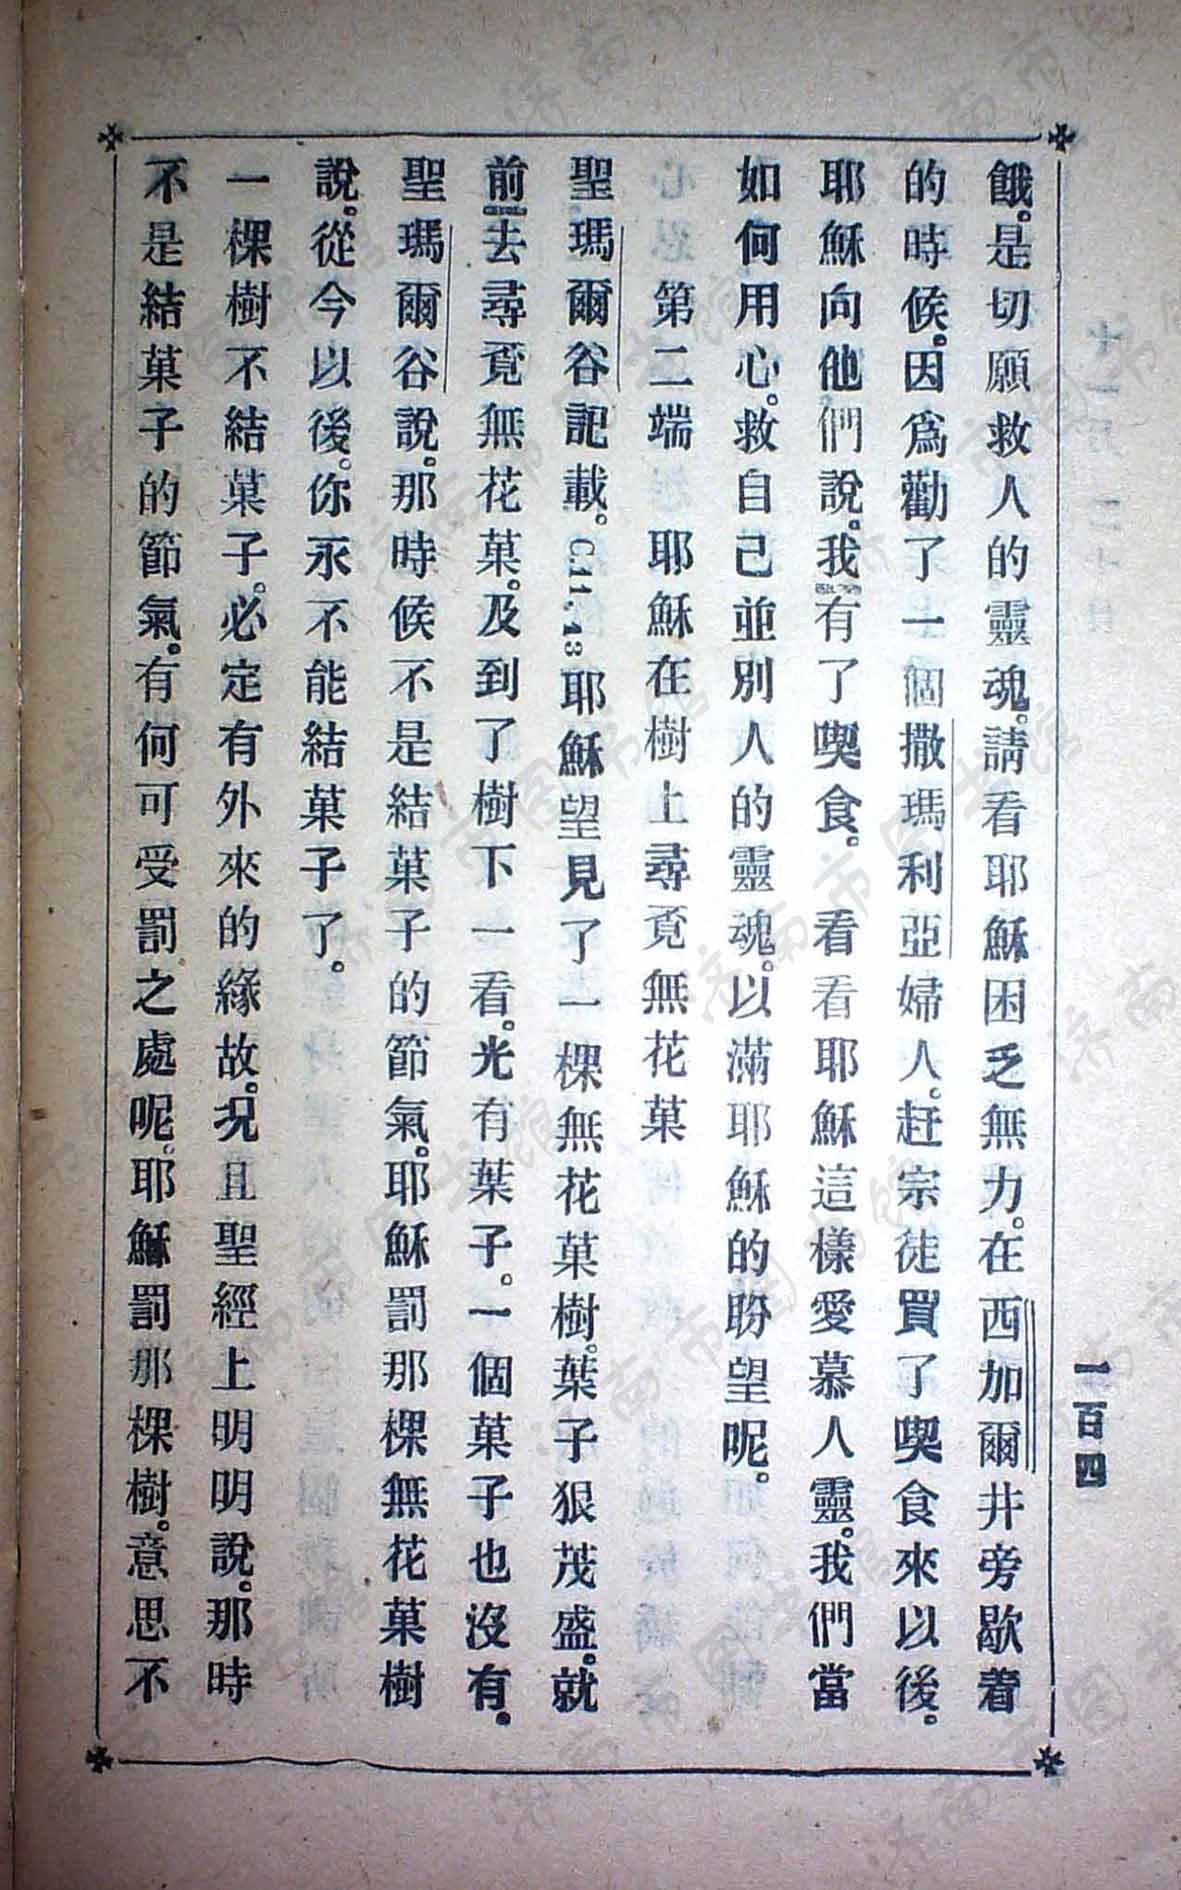 一百四
餓。是切願救人的靈魂。請看耶穌困乏無力。在西加爾井旁歇着
的時候。因爲勸了一個撒瑪利亞婦人。赶宗徒買了喫食來以後。
耶穌向他們說。我有了喫食。看看耶穌這樣愛慕人靈。我們當
如何用心。救自己並別人的靈魂。以滿耶穌的盼望呢。
第二端 耶穌在樹上尋覔無花菓
聖瑪爾谷記載。C.11.43耶穌望見了一棵無花菓樹。葉子狠茂盛。就
前去尋覔無花菓。及到了樹下一看。光有葉子。一個菓子也沒有。
聖瑪爾谷說。那時候不是結菓子的節氣。耶穌罰那棵無花菓樹
說。從今以後。你永不能結菓子了。
一棵樹不結菓子。必定有外來的緣故。况且聖經上明明說。那時
不是結菓子的節氣。有何可受罰之處呢。耶穌罰那棵樹。意思不
济南市图书馆